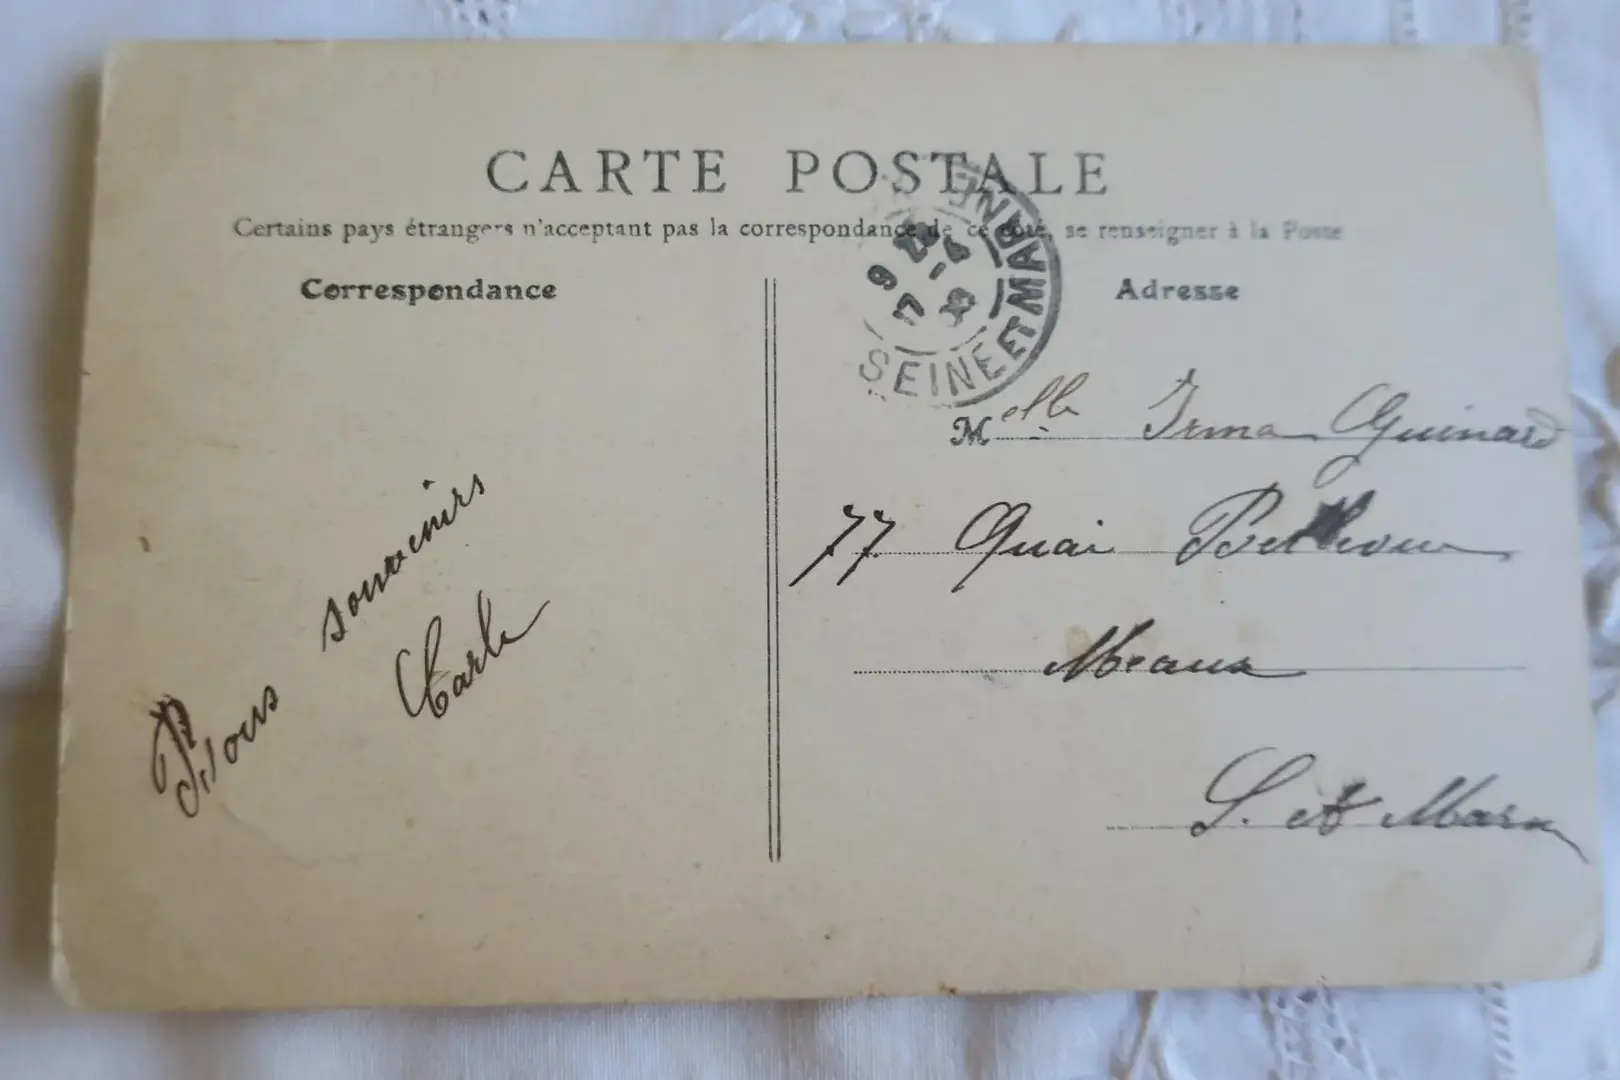 CARTE POSTALE
Certains pays étrangers n'acceptant pas la correspondance de ce côté, se renseigner à la Poste
Correspondance
Adresse
SEINE ET MARNE
Melle Irma Guinard
77 Quai
Meaux
S. et Marne
souvenirs